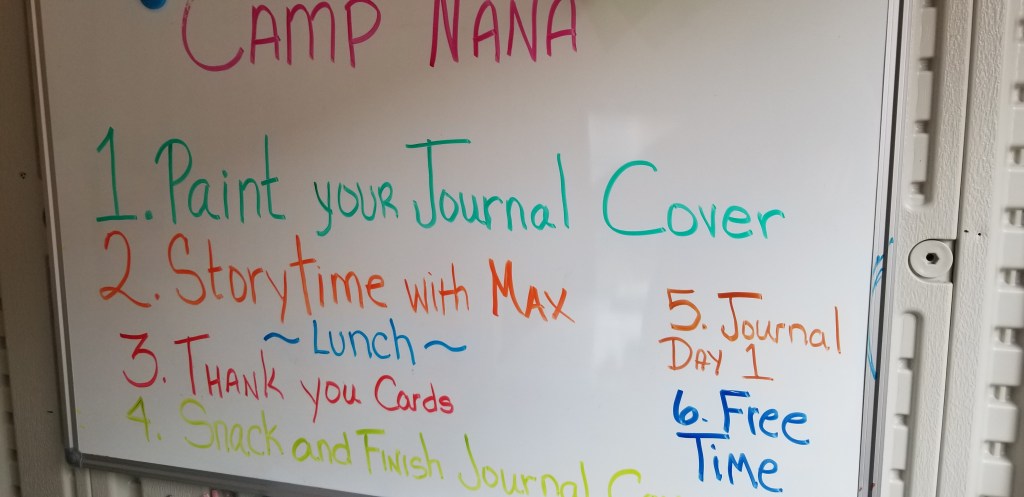 CAMP NANA
1. Paint your Journal Cover
2. Storytime with MAX
~ Lunch ~
3. THANK you Cards
4. Snack and Finish Journal
5. Journal
DAY 1
6. Free
Time